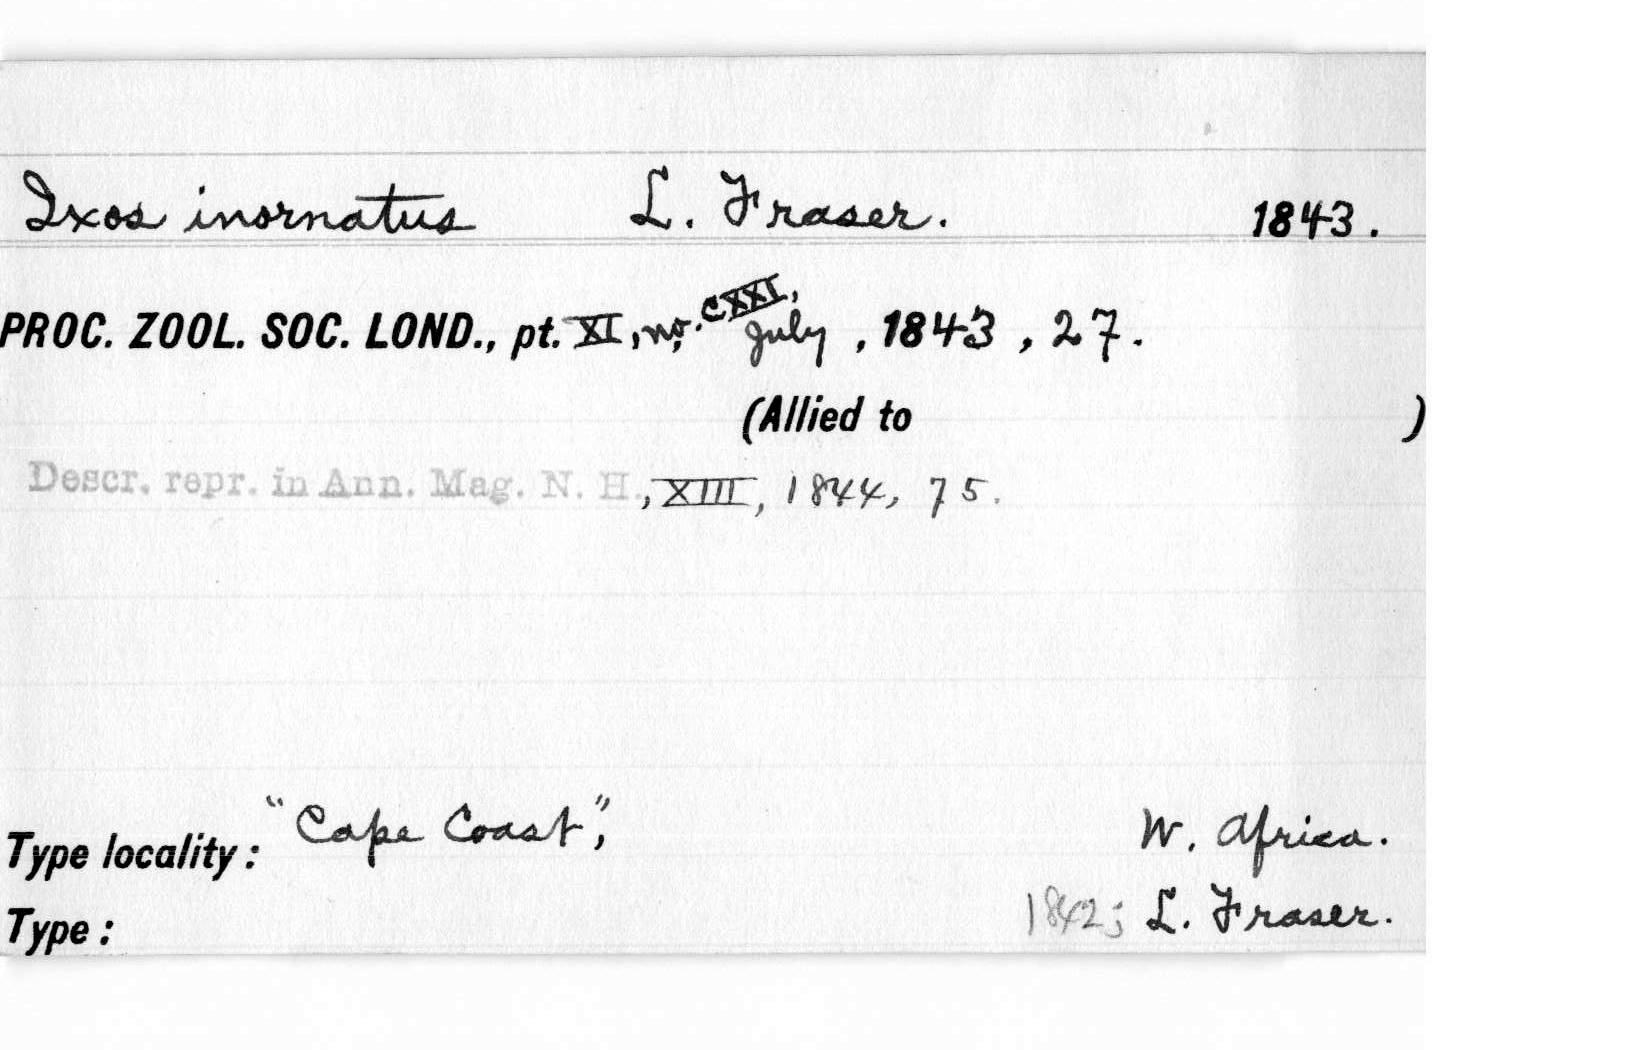 Ixos inornatus L. Fraser. 1843.
PROC. ZOOL. SOC. LOND., pt. XI, no. CXXI, July, 1843, 27.
(Allied to )
Descr. repr. in Ann. Mag. N. H., XIII, 1844, 75.
Type locality: "Cape Coast", W. Africa.
Type: 1842; L. Fraser.